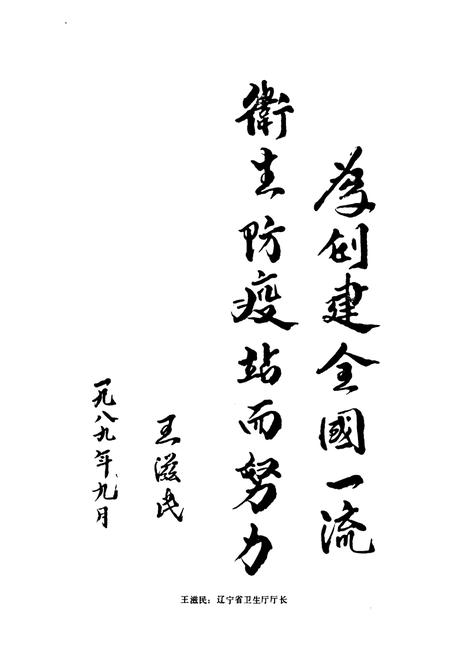 为创建全國一流
衛生防疫站而努力
王滋民
一九八九年九月
王滋民：辽宁省卫生厅厅长